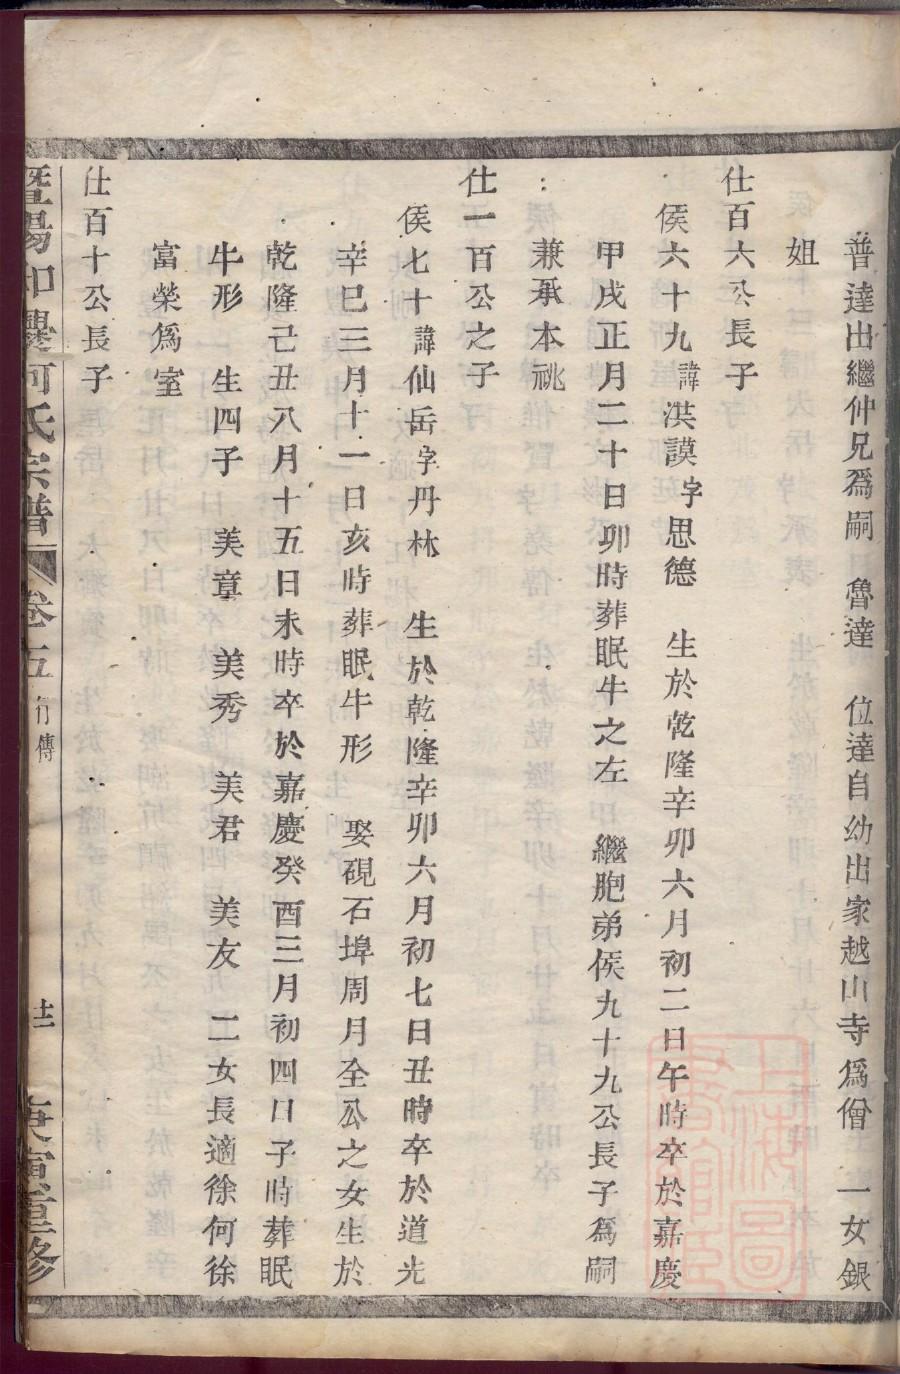 普達出繼仲兄爲嗣　魯達　位達自幼出家越山寺爲僧　一女銀
姐
仕百六公長子
侯六十九諱洪謨字思德　生於乾隆辛卯六月初二日午時卒於嘉慶
甲戌正月二十日卯時葬眠牛之左　繼胞弟侯九十九公長子爲嗣
兼承本祧
仕一百公之子
侯七十諱仙岳字丹林　生於乾隆辛卯六月初七日丑時卒於道光
辛巳三月十一日亥時葬眠牛形　娶硯石埠周月全公之女生於
乾隆己丑八月十五日未時卒於嘉慶癸酉三月初四日子時葬眠
牛形　生四子　美章　美秀　美君　美友　二女長適徐何徐
富榮爲室
仕百十公長子
暨陽和興何氏宗譜　卷五　行傳　庚寅重修
上海圖書館藏